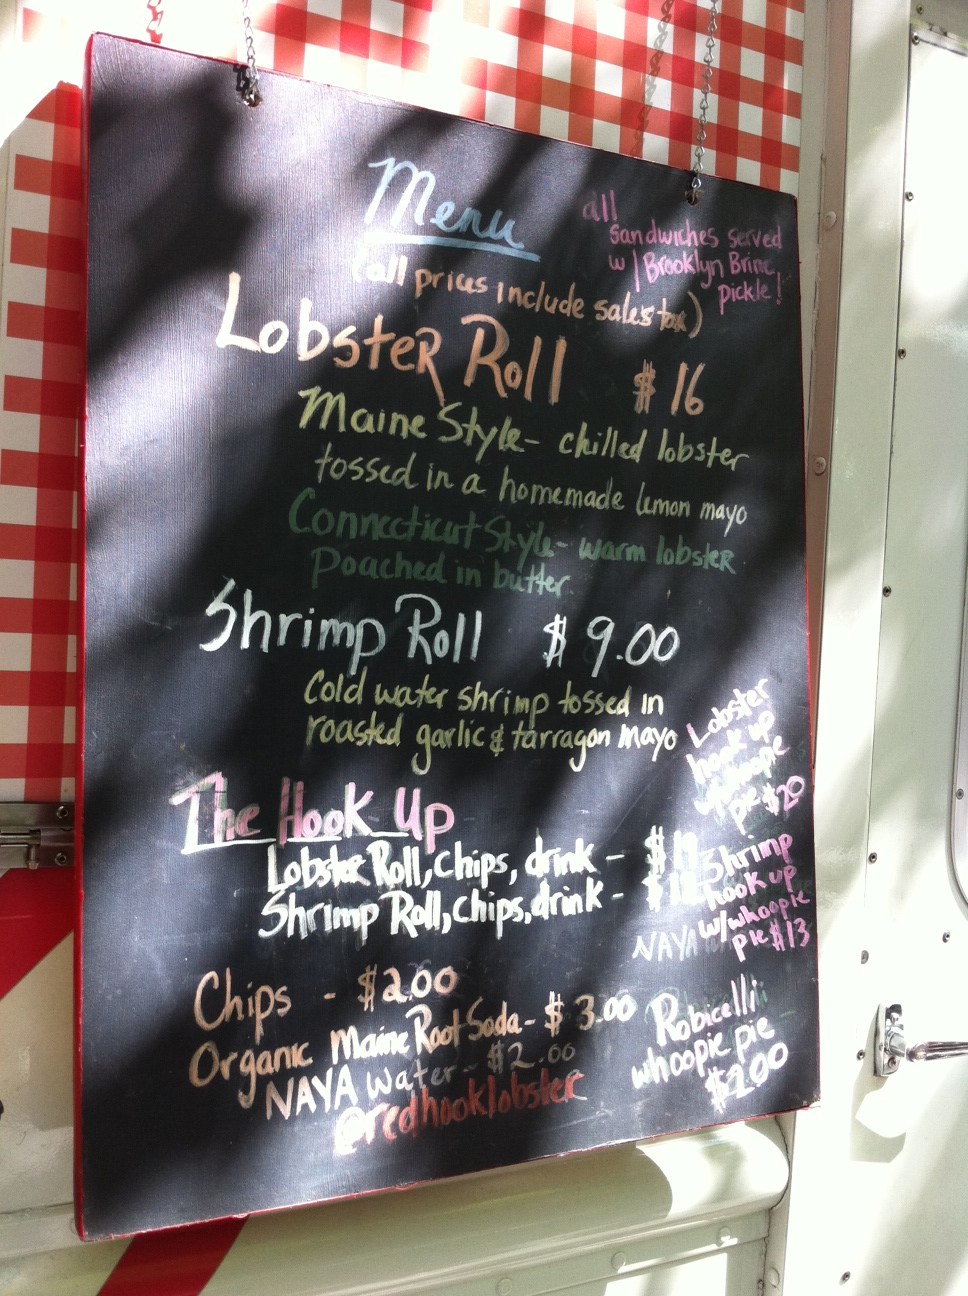 Menu
(all prices include sales tax)
all
sandwiches served
w/ Brooklyn Brine
pickle!
Lobster Roll $16
Maine Style- chilled lobster
tossed in a homemade lemon mayo
Connecticut Style- warm lobster
poached in butter
Shrimp Roll $9.00
Cold water shrimp tossed in
roasted garlic & tarragon mayo
The Hook Up
Lobster Roll, chips, drink - $19
Shrimp Roll, chips, drink - $12
NAYA
Lobster
hook up
w/whoopie
pie $20
Shrimp
hook up
w/whoopie
pie $13
Chips - $2.00
Organic Maine Root Soda - $3.00
NAYA water - $2.00
@redhooklobster
Robicelli
whoopie pie
$2.00